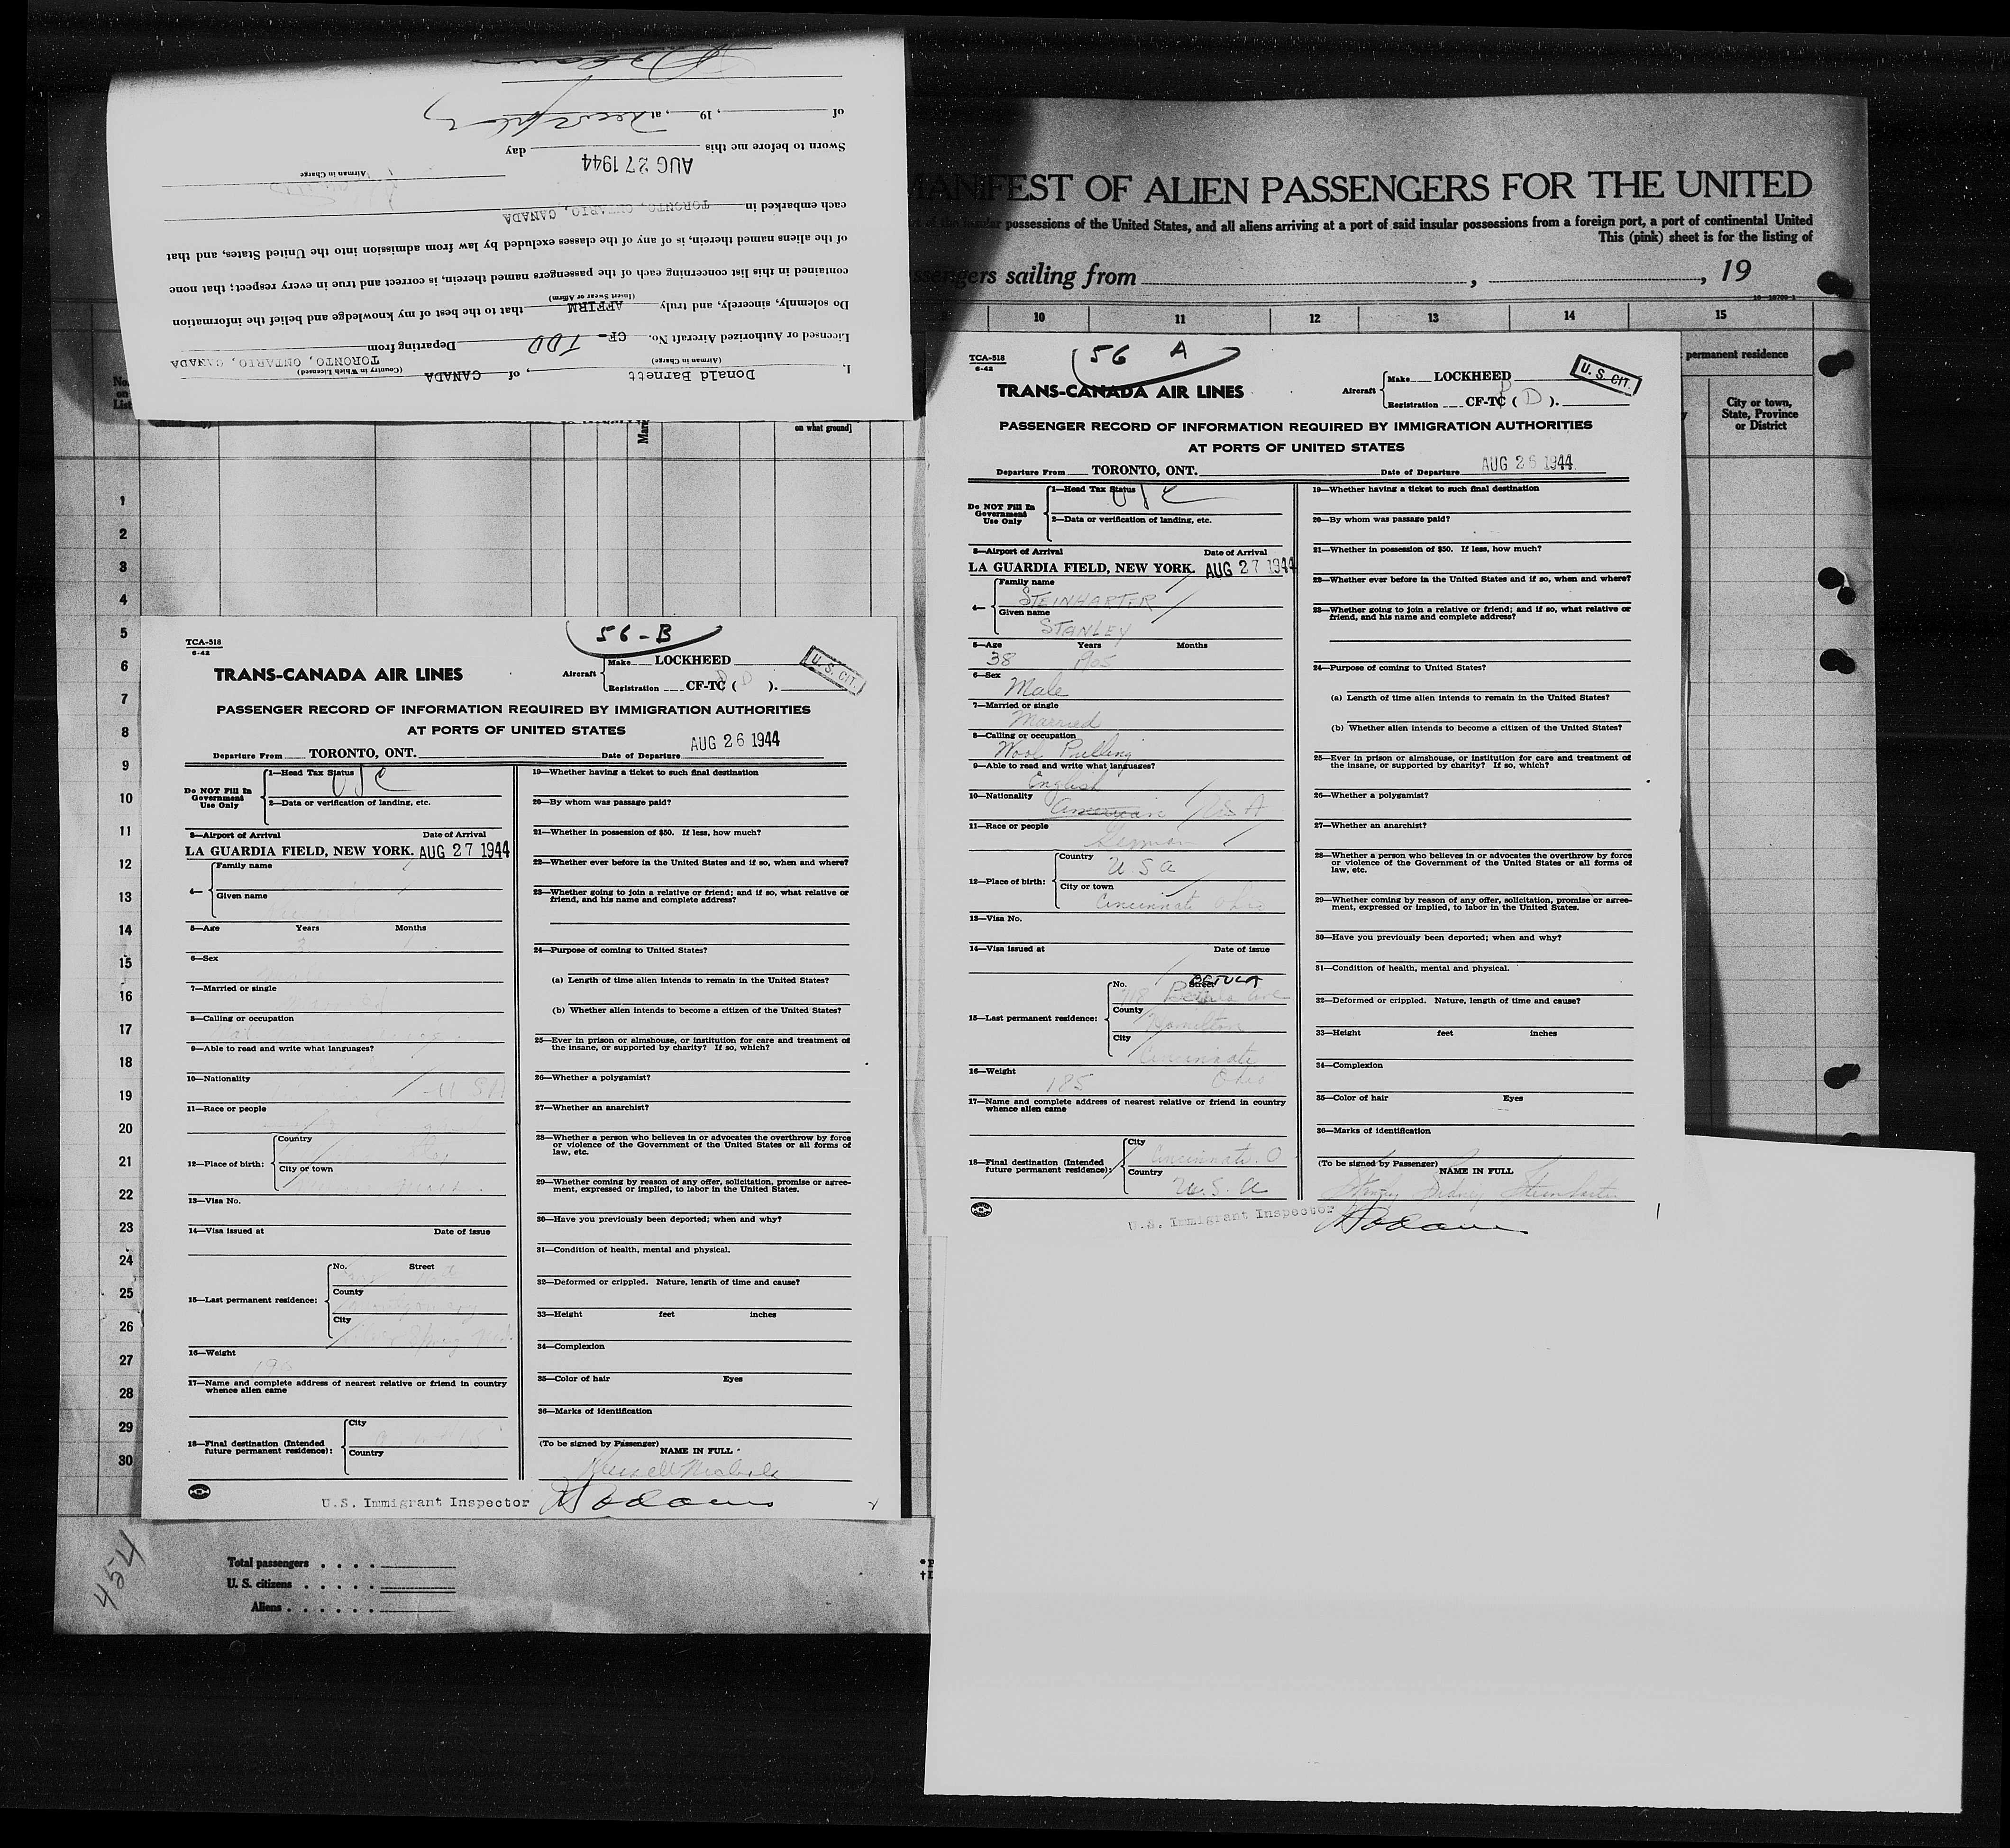 I, Donald Barnett, of CANADA
(Airman in Charge) (Country in Which Licensed)
Licensed or Authorized Aircraft No. CF- TDD Departing from TORONTO, ONTARIO, CANADA
Do solemnly, sincerely, and truly AFFIRM that to the best of my knowledge and belief the information
(Insert Swear or Affirm)
contained in this list concerning each of the passengers named therein, is correct and true in every respect; that none
of the aliens named therein, is of any of the classes excluded by law from admission into the United States, and that
each embarked in TORONTO, ONTARIO, CANADA
Airman in Charge
AUG 27 1944
Sworn to before me this day
of , 19 , at
MANIFEST OF ALIEN PASSENGERS FOR THE UNITED
possessions of the United States, and all aliens arriving at a port of said insular possessions from a foreign port, a port of continental United
This (pink) sheet is for the listing of
ssengers sailing from , , 19
10 11 12 13 14 15
permanent residence
City or town,
State, Province
or District
No.
on
List
on what ground]
1
2
3
4
5
6
7
8
9
10
11
12
13
14
15
16
17
18
19
20
21
22
23
24
25
26
27
28
29
30
TCA-518
6-42
56-B
TRANS-CANADA AIR LINES
Aircraft Make LOCKHEED
Registration CF-TC ( D ).
U. S. CIT.
PASSENGER RECORD OF INFORMATION REQUIRED BY IMMIGRATION AUTHORITIES
AT PORTS OF UNITED STATES
Departure From TORONTO, ONT. Date of Departure AUG 26 1944
Do NOT Fill In
Government
Use Only
1—Head Tax Status USC
2—Data or verification of landing, etc.
3—Airport of Arrival Date of Arrival
LA GUARDIA FIELD, NEW YORK. AUG 27 1944
4— Family name
Given name
5—Age Years Months
6—Sex
7—Married or single
8—Calling or occupation
9—Able to read and write what languages?
10—Nationality
USA
11—Race or people
12—Place of birth: Country
City or town
Mass.
13—Visa No.
14—Visa issued at Date of issue
15—Last permanent residence: No. Street
County
Montgomery
City
Silver Spring Md.
16—Weight
17—Name and complete address of nearest relative or friend in country
whence alien came
18—Final destination (Intended
future permanent residence): City
Country
19—Whether having a ticket to such final destination
20—By whom was passage paid?
21—Whether in possession of $50. If less, how much?
22—Whether ever before in the United States and if so, when and where?
23—Whether going to join a relative or friend; and if so, what relative or
friend, and his name and complete address?
24—Purpose of coming to United States?
(a) Length of time alien intends to remain in the United States?
(b) Whether alien intends to become a citizen of the United States?
25—Ever in prison or almshouse, or institution for care and treatment of
the insane, or supported by charity? If so, which?
26—Whether a polygamist?
27—Whether an anarchist?
28—Whether a person who believes in or advocates the overthrow by force
or violence of the Government of the United States or all forms of
law, etc.
29—Whether coming by reason of any offer, solicitation, promise or agree-
ment, expressed or implied, to labor in the United States.
30—Have you previously been deported; when and why?
31—Condition of health, mental and physical.
32—Deformed or crippled. Nature, length of time and cause?
33—Height feet inches
34—Complexion
35—Color of hair Eyes
36—Marks of identification
(To be signed by Passenger) NAME IN FULL
Russell Nichols
U.S. Immigrant Inspector
454
Total passengers . . . .
U. S. citizens . . . . .
Aliens . . . . . .
TCA-518
6-42
56 A
TRANS-CANADA AIR LINES
Aircraft Make LOCKHEED
Registration CF-TC ( D ).
U. S. CIT.
PASSENGER RECORD OF INFORMATION REQUIRED BY IMMIGRATION AUTHORITIES
AT PORTS OF UNITED STATES
Departure From TORONTO, ONT. Date of Departure AUG 26 1944
Do NOT Fill In
Government
Use Only
1—Head Tax Status USC
2—Data or verification of landing, etc.
3—Airport of Arrival Date of Arrival
LA GUARDIA FIELD, NEW YORK. AUG 27 1944
4— Family name
STEINHARTER
Given name
STANLEY
5—Age Years Months
38 1905
6—Sex
Male
7—Married or single
Married
8—Calling or occupation
Wool Pulling
9—Able to read and write what languages?
English
10—Nationality
American U.S.A
11—Race or people
German
12—Place of birth: Country
U.S.A
City or town
Cincinnati Ohio
13—Visa No.
14—Visa issued at Date of issue
15—Last permanent residence: No. Street
BETULA
718 Betula Ave
County
Hamilton
City
Cincinnati
Ohio
16—Weight
185
17—Name and complete address of nearest relative or friend in country
whence alien came
18—Final destination (Intended
future permanent residence): City
Cincinnati. O
Country
U.S.A
19—Whether having a ticket to such final destination
20—By whom was passage paid?
21—Whether in possession of $50. If less, how much?
22—Whether ever before in the United States and if so, when and where?
23—Whether going to join a relative or friend; and if so, what relative or
friend, and his name and complete address?
24—Purpose of coming to United States?
(a) Length of time alien intends to remain in the United States?
(b) Whether alien intends to become a citizen of the United States?
25—Ever in prison or almshouse, or institution for care and treatment of
the insane, or supported by charity? If so, which?
26—Whether a polygamist?
27—Whether an anarchist?
28—Whether a person who believes in or advocates the overthrow by force
or violence of the Government of the United States or all forms of
law, etc.
29—Whether coming by reason of any offer, solicitation, promise or agree-
ment, expressed or implied, to labor in the United States.
30—Have you previously been deported; when and why?
31—Condition of health, mental and physical.
32—Deformed or crippled. Nature, length of time and cause?
33—Height feet inches
34—Complexion
35—Color of hair Eyes
36—Marks of identification
(To be signed by Passenger) NAME IN FULL
Stanley Sidney Steinharter
U.S. Immigrant Inspector